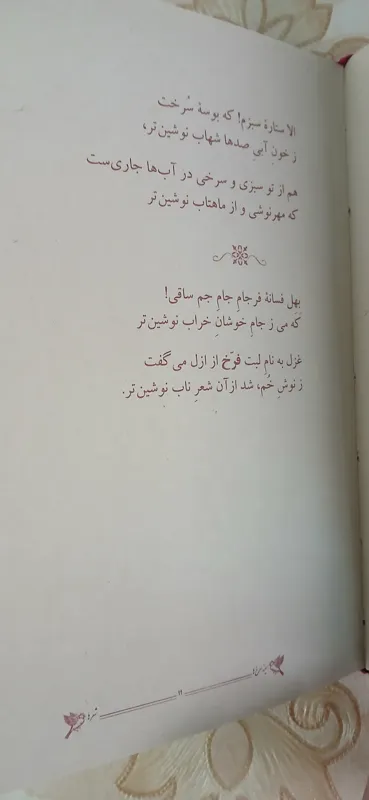 الا ستارهٔ سبزم! که بوسهٔ سُرخت
ز خونِ آبیِ صدها شهاب نوشین‌تر،
هم از تو سبزی و سرخی در آب‌ها جاری‌ست
که مهرنوشی و از ماهتاب نوشین‌تر
بِهِل فسانهٔ فرجامِ جامِ جم ساقی!
که می ز جامِ خَوشانِ خراب نوشین‌تر
غزل به نامِ لبت فرّخ از ازل می‌گفت
ز نوشِ خُم، شد از آن شعرِ ناب نوشین‌تر.
۱۱